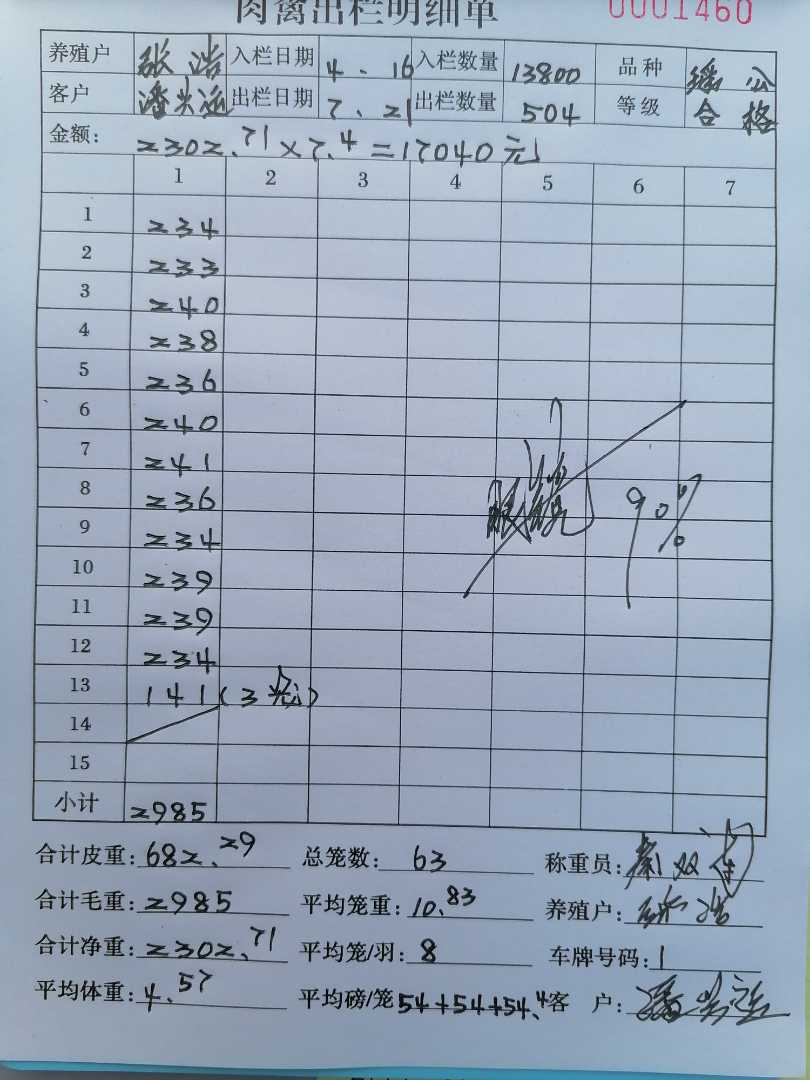 肉禽出栏明细单 0001460
养殖户 张浩 入栏日期 4.16 入栏数量 13800 品种 瑶公
客户 潘兴运 出栏日期 7.21 出栏数量 504 等级 合格
金额: 2302.71×7.4=17040元
1 2 3 4 5 6 7
1 234
2 233
3 240
4 238
5 236
6 240
7 241
8 236
9 234
10 239
11 239
12 234
13 141(3笼)
90%
14
15
小计 2985
合计皮重: 682.29 总笼数: 63 称重员:
合计毛重: 2985 平均笼重: 10.83 养殖户: 张浩
合计净重: 2302.71 平均笼/羽: 8 车牌号码: 1
平均体重: 4.57 平均磅/笼 54+54+54.4 客户: 潘兴运